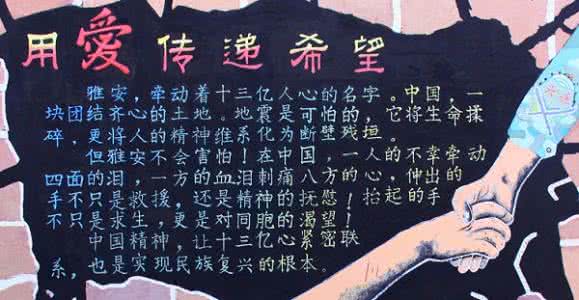 用爱传递希望
雅安,牵动着十三亿人心的名字。中国,一
块团结齐心的土地。地震是可怕的,它将生命揉
碎,更将人的精神维系化为断壁残垣。
但雅安不会害怕!在中国,一人的不幸牵动
四面的泪,一方的血泪刺痛八方的心,伸出的
手不只是救援,还是精神的抚慰!抬起的手
不只是求生,更是对同胞的渴望!
中国精神,让十三亿心紧密联
系,也是实现民族复兴的根本。